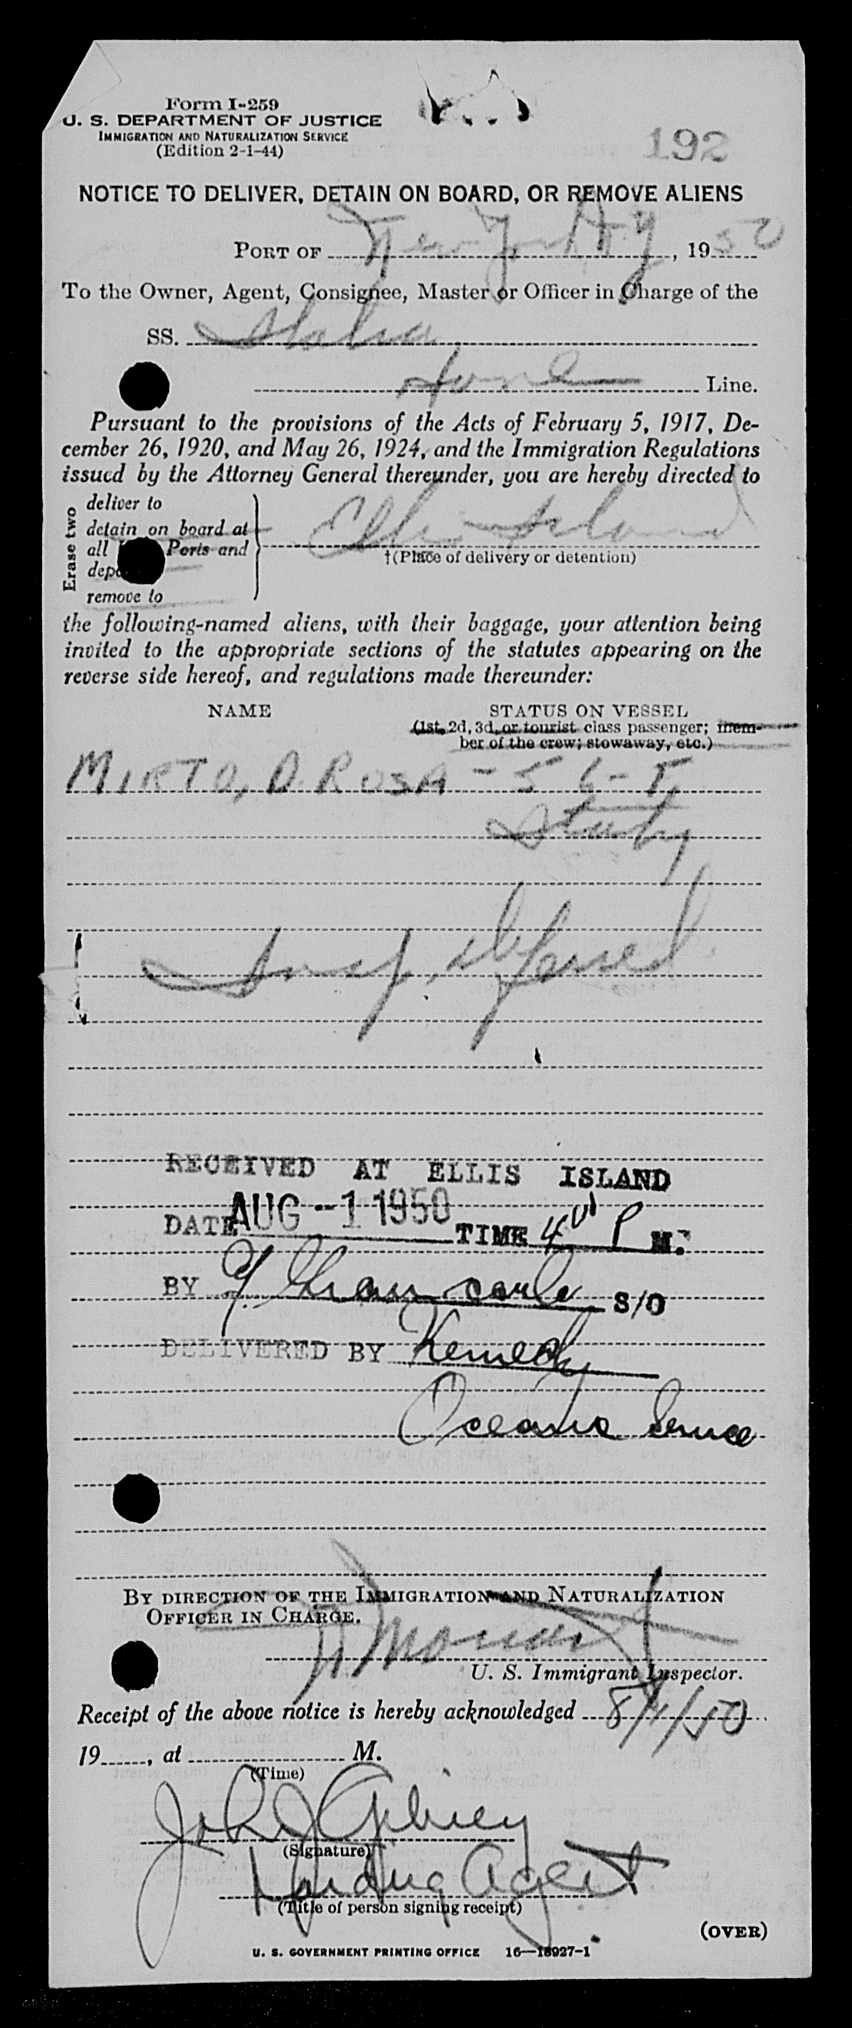 Form I-259
U. S. DEPARTMENT OF JUSTICE
IMMIGRATION AND NATURALIZATION SERVICE
(Edition 2-1-44)
192
NOTICE TO DELIVER, DETAIN ON BOARD, OR REMOVE ALIENS
PORT OF New York N.Y, 1950
To the Owner, Agent, Consignee, Master or Officer in Charge of the
SS. Italia
Home Line.
Pursuant to the provisions of the Acts of February 5, 1917, De-
cember 26, 1920, and May 26, 1924, and the Immigration Regulations
issued by the Attorney General thereunder, you are hereby directed to
Erase two
deliver to
detain on board at
all Ports and
remove to
Ellis Island
†(Place of delivery or detention)
the following-named aliens, with their baggage, your attention being
invited to the appropriate sections of the statutes appearing on the
reverse side hereof, and regulations made thereunder:
NAME STATUS ON VESSEL
(1st, 2d, 3d, or tourist class passenger; mem-
ber of the crew; stowaway, etc.)
MIRTO, D. ROSA - 56 -
Insp. deferred
RECEIVED AT ELLIS ISLAND
DATE AUG -1 1950 TIME 4 P M.
BY S/O
DELIVERED BY Kennedy
Oceanic Service
BY DIRECTION OF THE IMMIGRATION AND NATURALIZATION
OFFICER IN CHARGE.
U. S. Immigrant Inspector.
Receipt of the above notice is hereby acknowledged 8/1/50
19, at M.
(Time)
John J
(Signature)
Agent
(Title of person signing receipt)
(OVER)
U. S. GOVERNMENT PRINTING OFFICE 16—18927-1